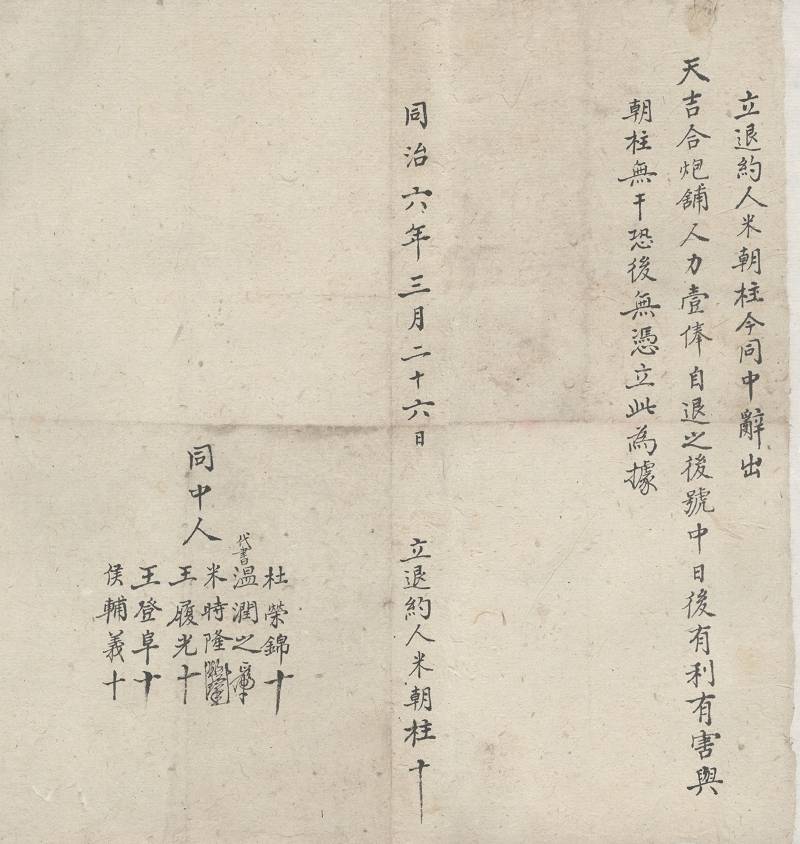 立退約人米朝柱今同中辭出
天吉合炮舖人力壹俸自退之後號中日後有利有害與
朝柱無干恐後無憑立此為據
同治六年三月二十六日
立退約人米朝柱十
同中人
杜榮錦十
代書溫潤之
米時隆
王履光十
王登阜十
侯輔義十